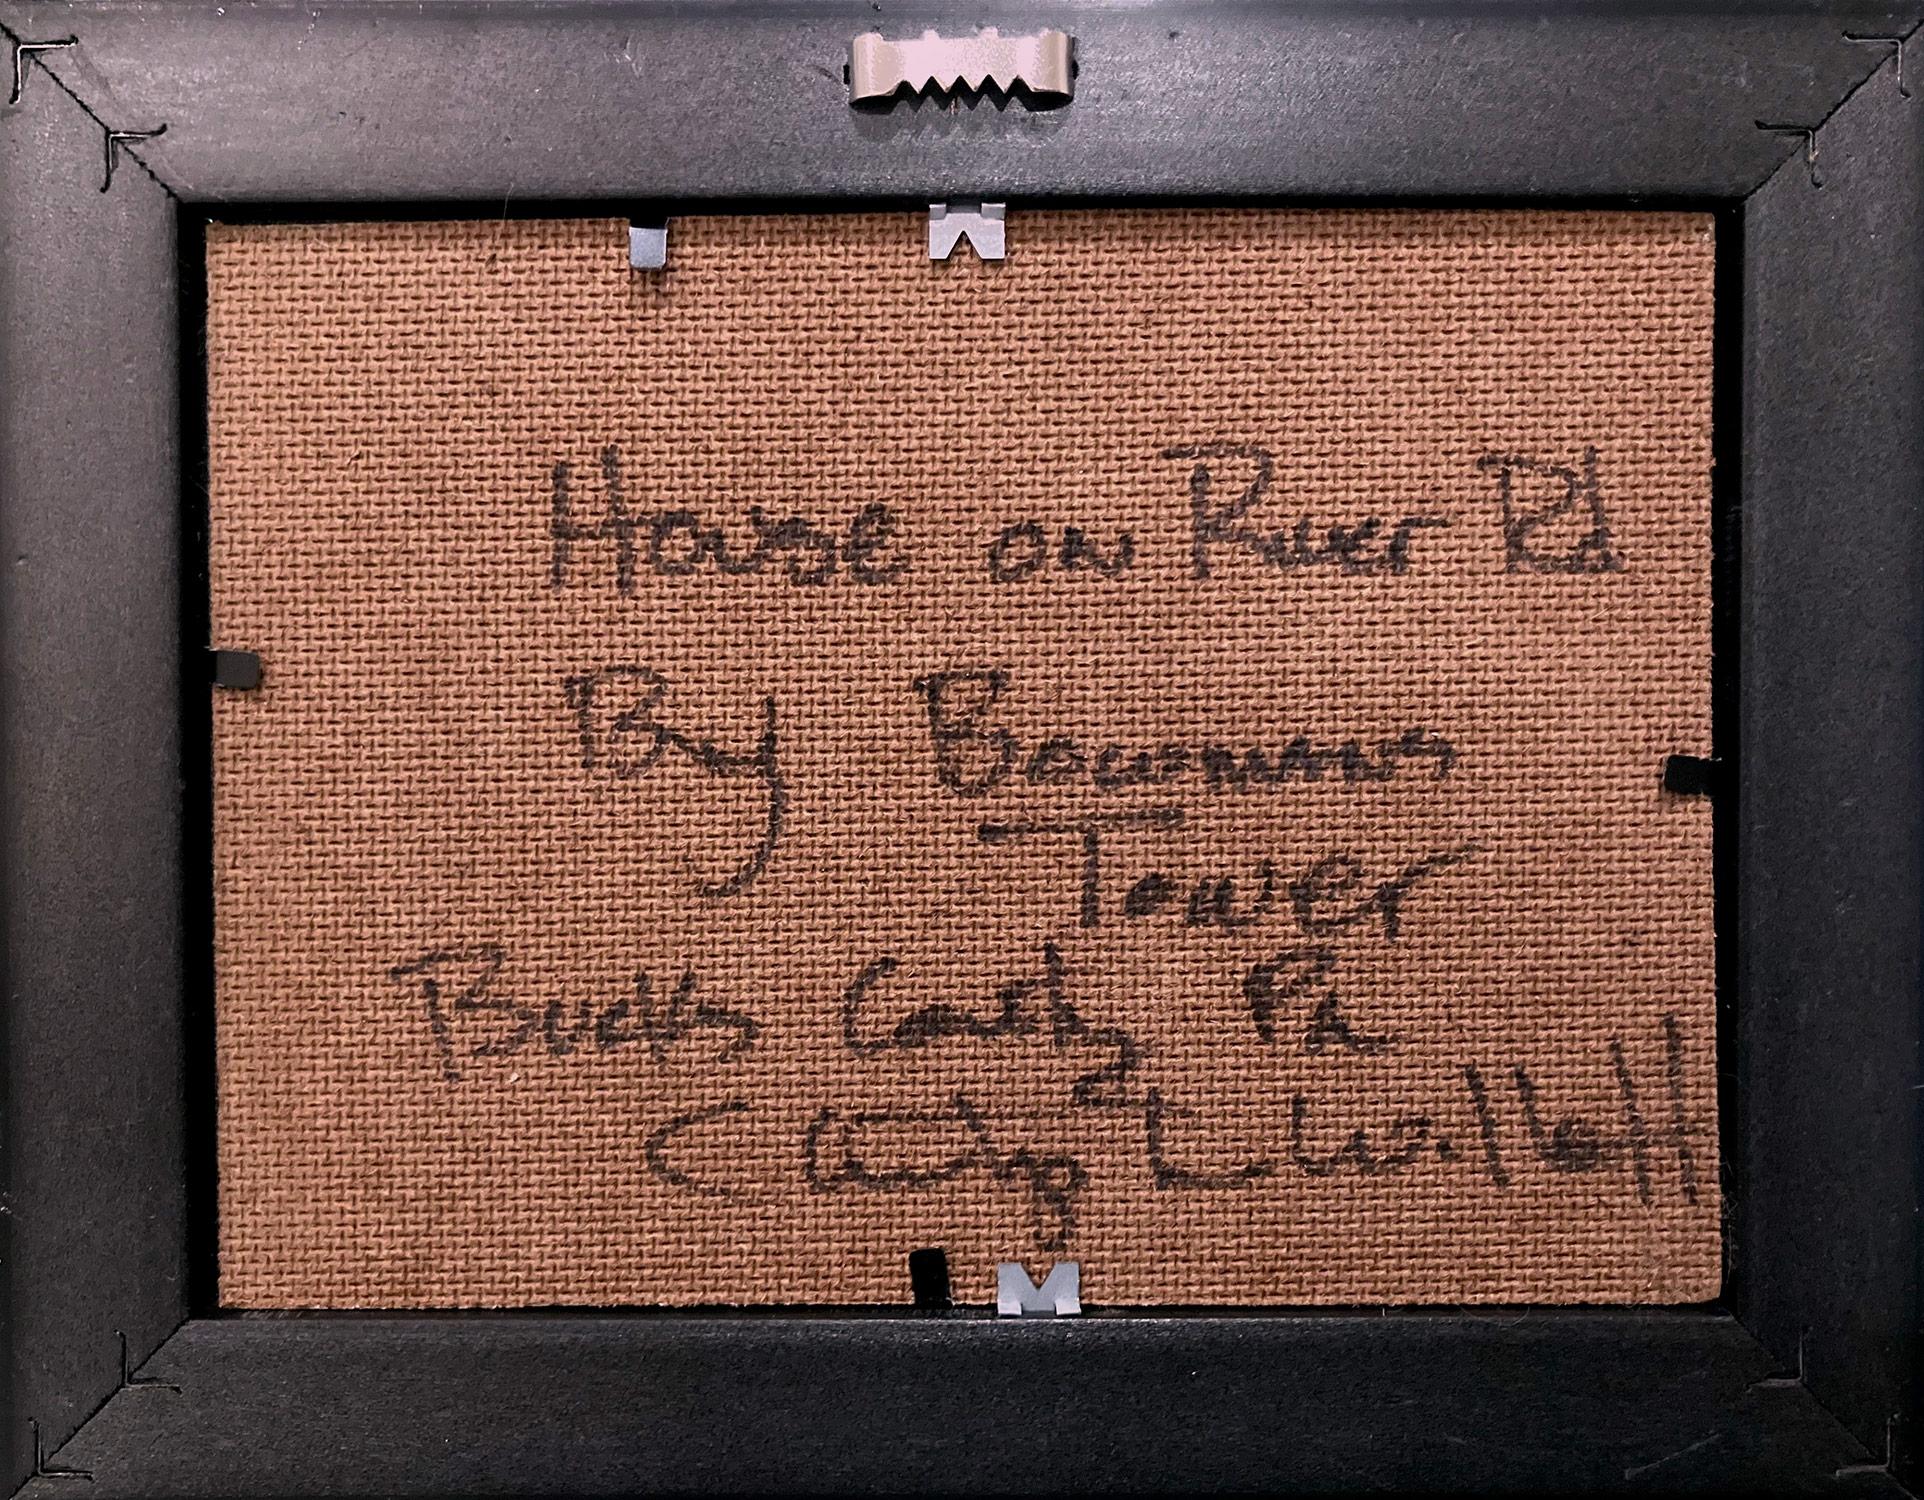 House on River Rd
By Bowmans
Tower
Bucks County Pa